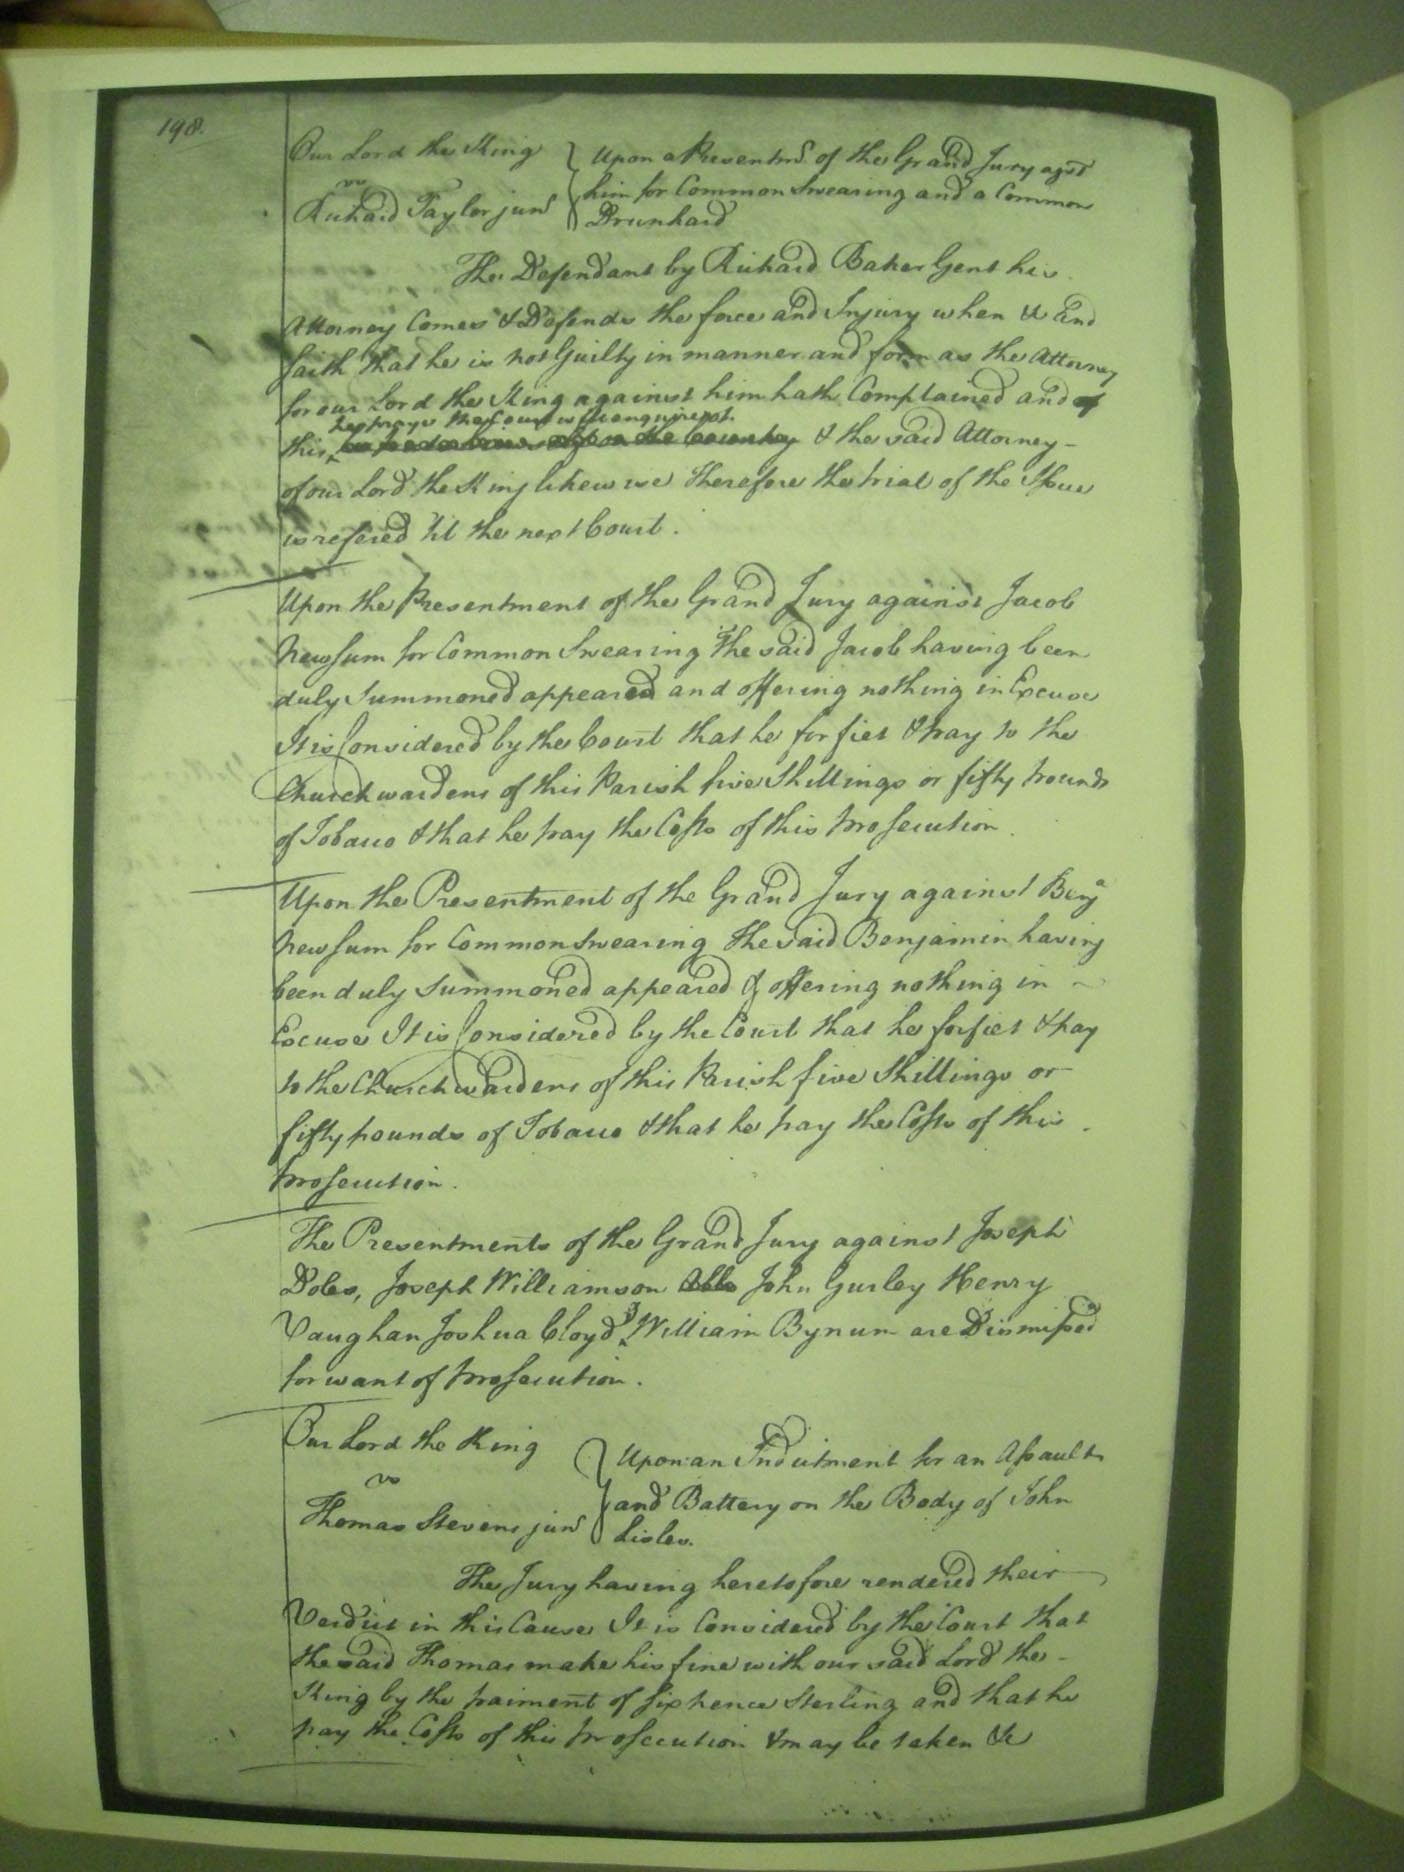 198.
Our Lord the King } Upon a Presentmt. of the Grand Jury agst
vs him for Common Swearing and a Common
Richard Taylor junr Drunkard
The Defendant by Richard Baker Gent his
Attorney Comes & Defends the force and Injury when &c and
saith that he is not Guilty in manner and form as the Attorney
for our Lord the King against him hath Complained and of
he prays the Court will enquire &
this he puts himself on the Country & the said Attorney -
of our Lord the King likewise Therefore the trial of the Issue
is refered 'til the next Court.
Upon the Presentment of the Grand Jury against Jacob
Newsum for Common Swearing The said Jacob having been
duly Summoned appeared and offering nothing in Excuse
It is Considered by the Court that he forfiet & pay to the
Church wardens of this Parish five Shillings or fifty pounds
of Tobacco & that he pay the Costs of this prosecution.
Upon the Presentment of the Grand Jury against Benja
Newsum for Common Swearing The said Benjamin having
been duly Summoned appeared & offering nothing in
Excuse It is Considered by the Court that he forfiet & pay
to the Church wardens of this Parish five Shillings or
fifty pounds of Tobacco & that he pay the Costs of this
prosecution.
The Presentments of the Grand Jury against Joseph
Doles, Joseph Williamson John Gurley Henry
Vaughan Joshua Cloyd & William Bynum are Dismissed
for want of prosecution.
Our Lord the King } Upon an Indictment for an Assault
vs and Battery on the Body of John
Thomas Stevens junr Lisles.
The Jury having heretofore rendered their
Verdict in this Cause It is Considered by the Court that
the said Thomas make his fine with our said Lord the -
King by the paiment of Sixpence Sterling and that he
pay the Costs of this prosecution & may be taken &c